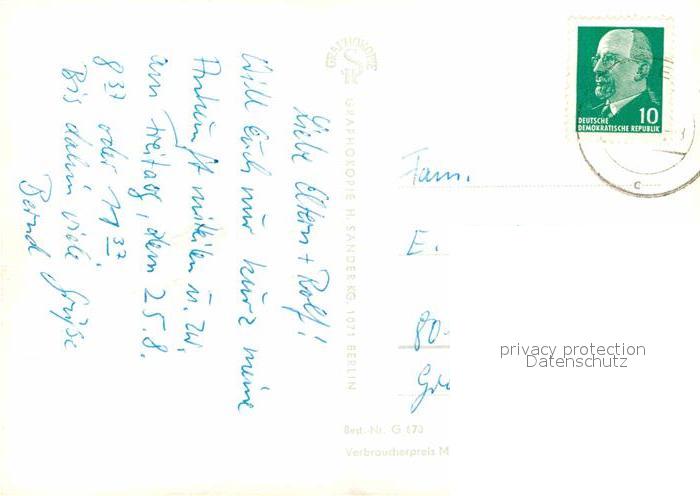 Liebe Eltern + Rolf!
Will Euch nur kurz meine
Ankunft mitteilen u. zw.
am Freitag, dem 25.8.
8 37 oder 11 37
Bis dahin viele Grüße
Bernd
GRAPHOKOPIE
GRAPHOKOPIE H. SANDER KG, 1071 BERLIN
DEUTSCHE
DEMOKRATISCHE REPUBLIK
10
c
Fam.
E.
80-
privacy protection
Datenschutz
Best.-Nr. G 673
Verbraucherpreis M